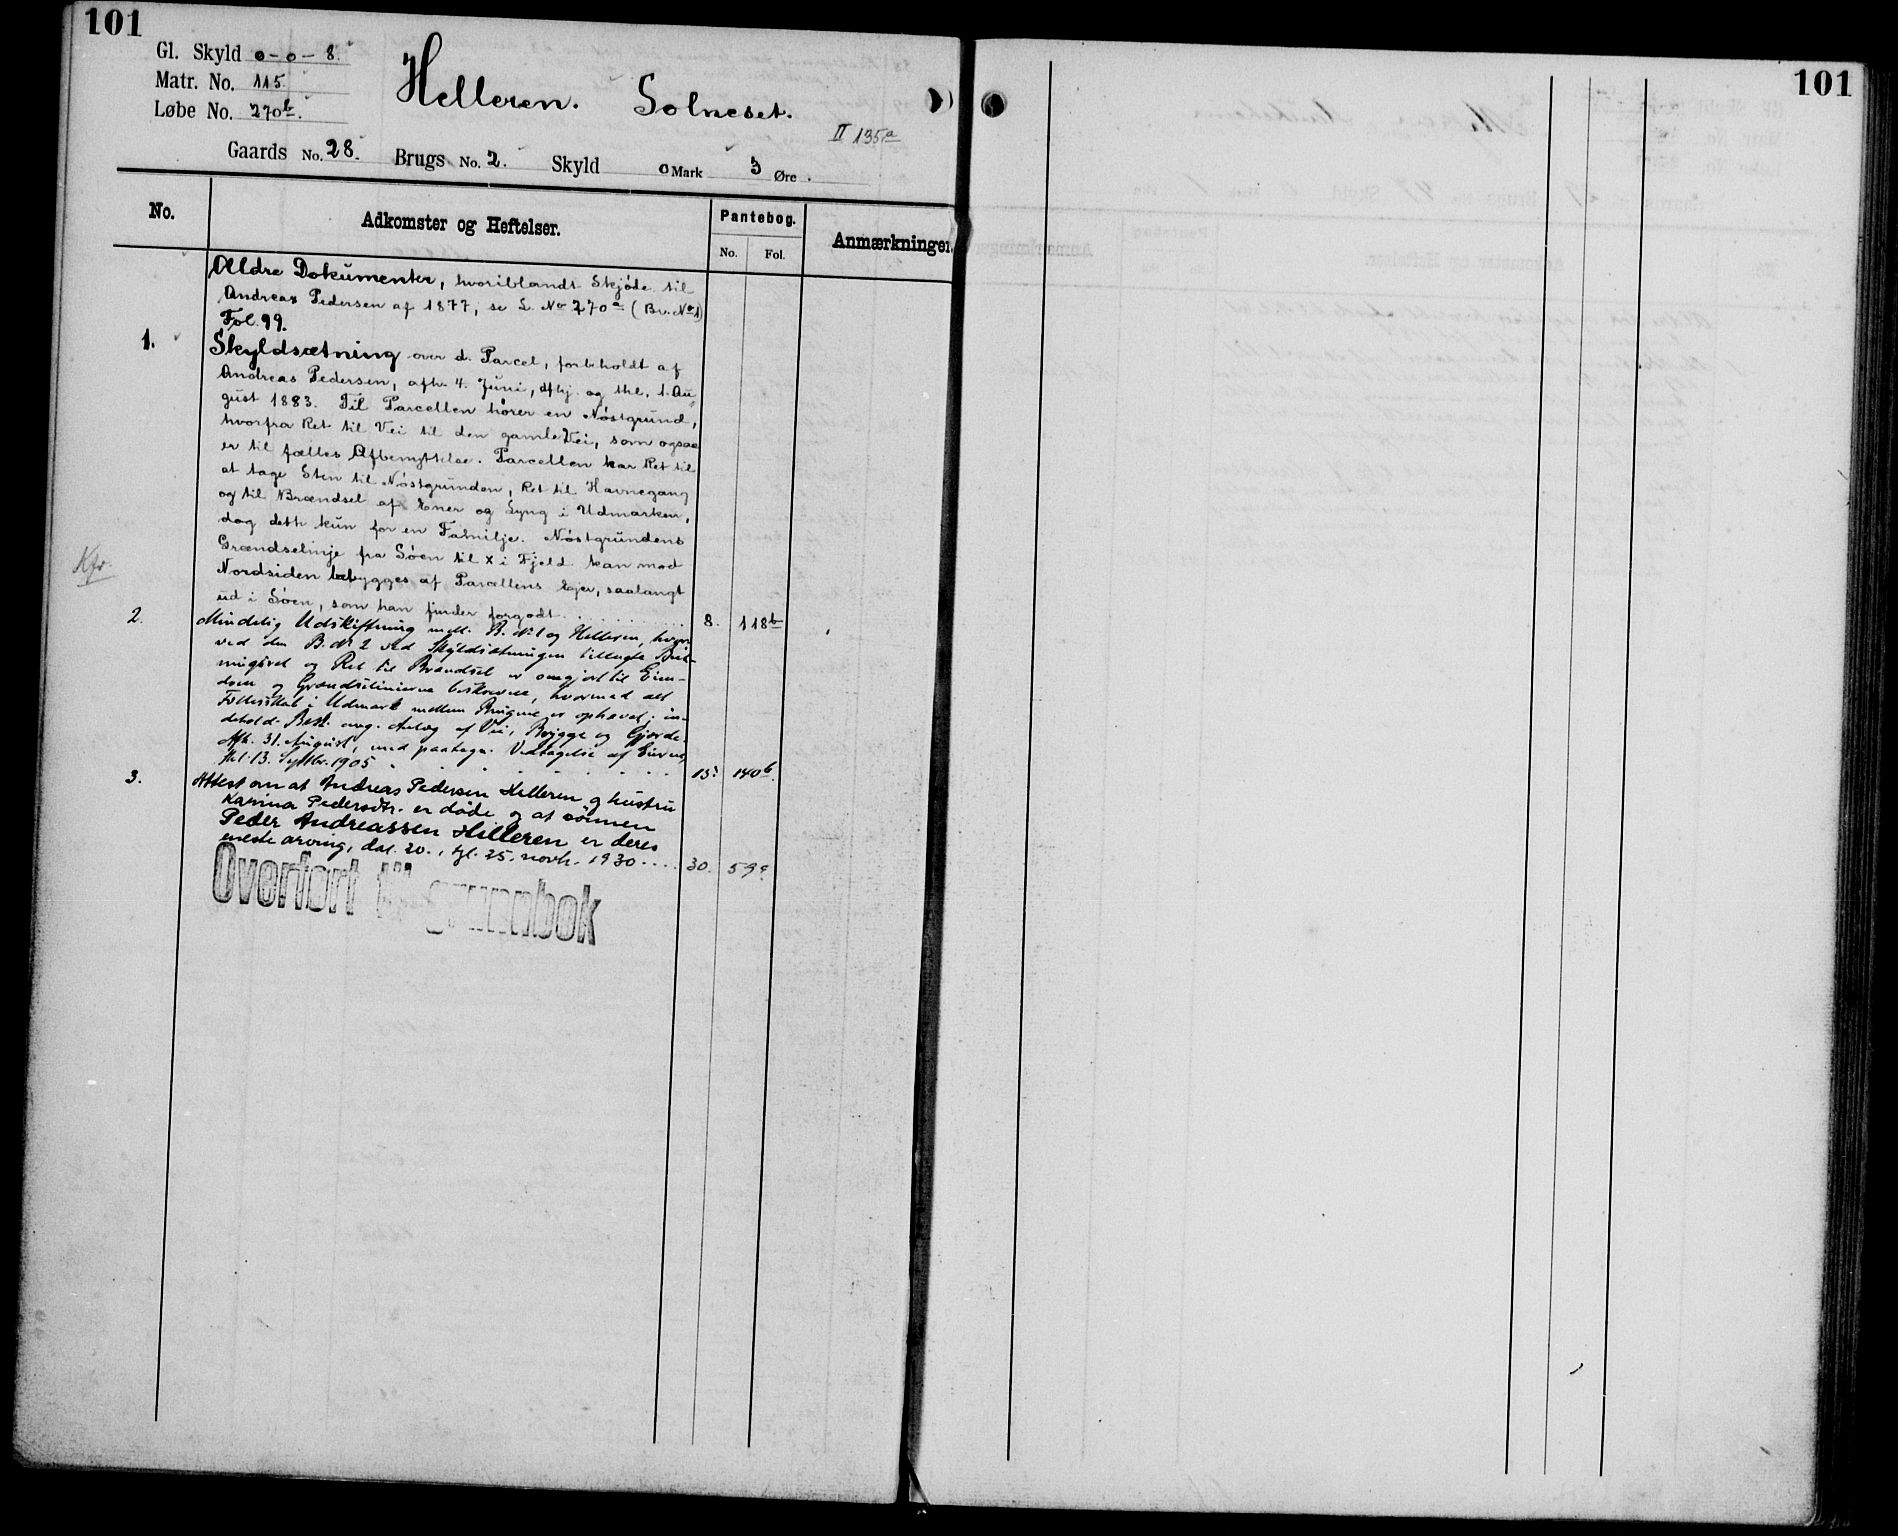 101
Gl. Skyld 0-0-8.
Matr. No. 115.
Løbe No. 270b.
Helleren. Solneset.
II 135a
Gaards No. 28. Brugs No. 2. Skyld 0 Mark 3 Øre.
No.
Adkomster og Heftelser.
Pantebog.
No. Fol.
Anmærkninger
Ældre Dokumenter, hvoriblandt Skjøde til
Andreas Pedersen af 1877, se L. No 270a (Br. No 1)
Fol. 99.
1. Skyldsætning over d. Parcel, forbeholdt af
Andreas Pedersen, afh. 4. Juni, afhj. og thl. 1. Au-
gust 1883. Til Parcellen hører en Nøstgrund,
hvorfra Ret til Vei til den gamle Vei, som ogsaa
er til fælles Afbenyttelse. Parcellen har Ret til
at tage Sten til Nøstgrunden, Ret til Havnegang
og til Brændsel af Ener og Lyng i Udmarken,
dog dette kun for en Familje. Nøstgrundens
Grændselinje fra Søen til x i Fjeld kan mod
Nordsiden bebygges af Parcellens Ejer, saalangt
ud i Søen, som han finder forgodt. 8. 118b
Kfr.
2. Mindelig Udskiftning mell. B. No 1 og Helleren, hvor-
ved den B. No 2 ved Skyldsætningen tillagte Beit-
ningsret og Ret til Brændsel er omgjort til Eien-
dom og Grændselinierne beskrevne, hvormed alt
Fællesskab i Udmark mellem Brugene er ophævet; in-
dehold. Best. ang. Anlæg af Vei, Brygge og Gjærde.
Afh. 31. August, med paategn. Vedtagelse af Eierne,
thl. 13. Septbr. 1905 15. 140b.
3. Attest om at Andreas Pedersen Helleren og hustru
Karina Pedersdtr. er døde og at sønnen
Peder Andreassen Helleren er deres
eneste arving, dat. 20., tgl. 25. novb. 1930 .... 30. 59a
Overført til grunnbok
101